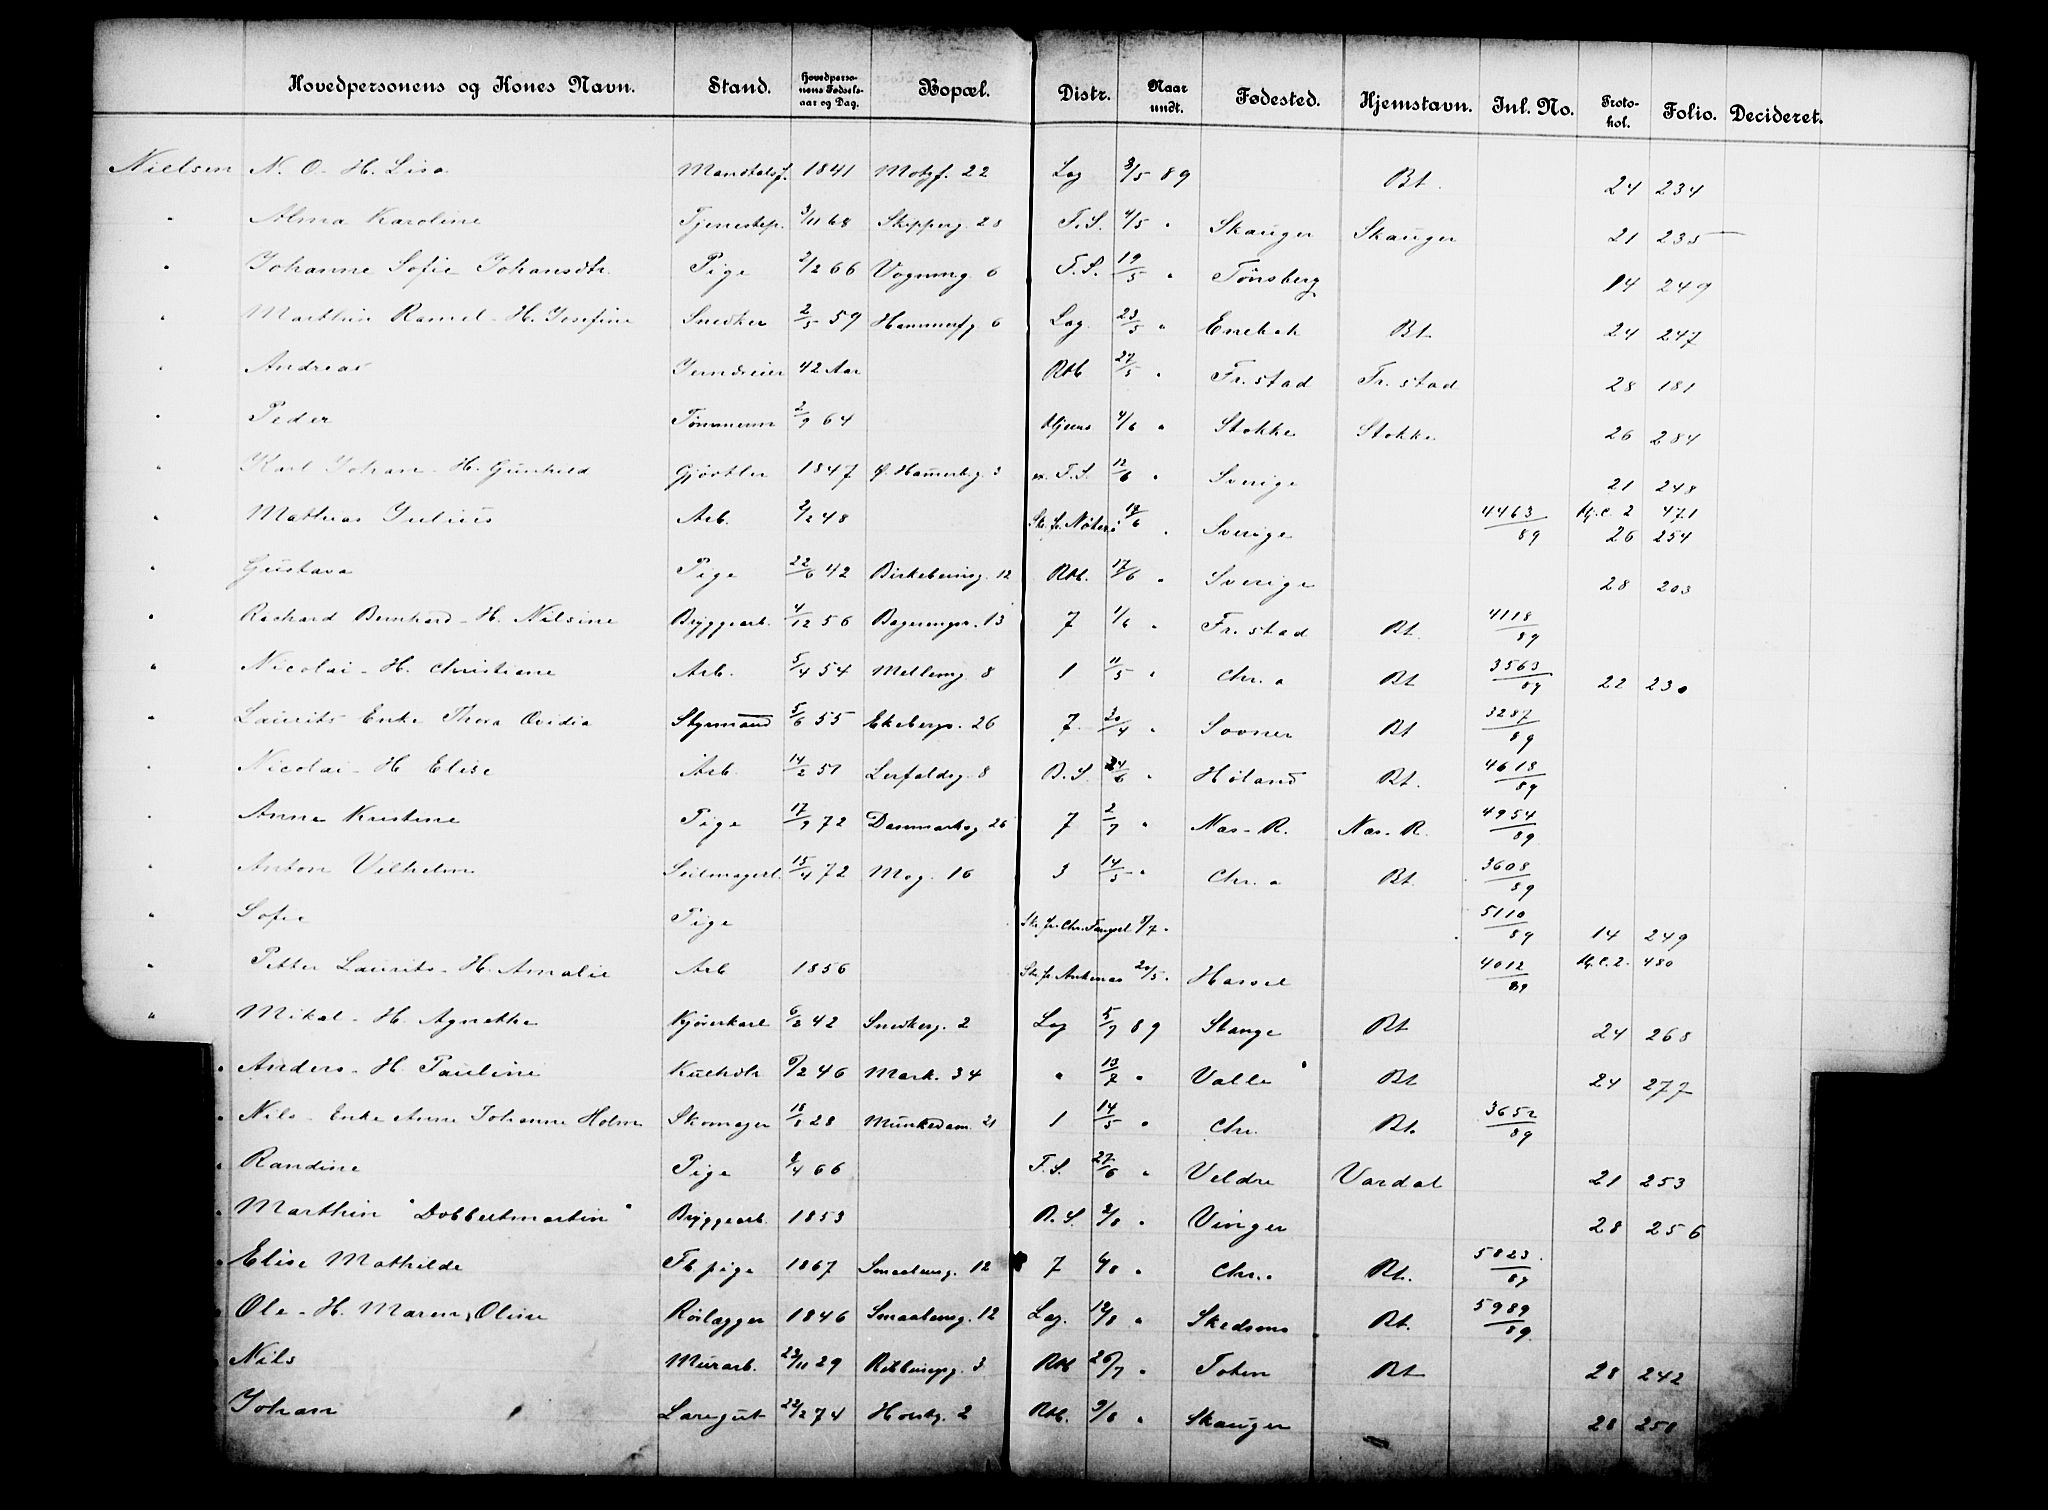 Hovedpersonens og Kones Navn. Stand. Hovedpersonens Fødselsaar og Dag. Bopæl. Distr. Naar undt. Fødested. Hjemstavn. Inl. No. Protokol. Folio. Decideret.
Nielsen N. O. H. Lisa 1841 Motzf. 22 Lag 89 Bt. 24 234
" Alma Karoline Tjenestep. 3/11 68 Skipperg. 28 F.S. 4/5 " Skauger Skauger 21 235
" Johanne Sofie Johansdtr. Pige 2/2 66 Vognmg. 6 F.S. 19/5 " Tønsberg 14 249
" Marthin Ramel - H. Josefine Snedker 2/5 59 Hammerfg. 6 Lag. 23/5 " Enebak Bt. 24 247
" Andreas 42 Aar Rtb 5 " Fr.stad Fr.stad 28 181
" Peder Tømmerm 2/9 64 Hjems 4/6 " Stokke Stokke 26 284
" Karl Johan - H. Gunhild Gjørtler 1847 3 F.S. 12/6 " Sverige 21 248
" Mathias Julius Arb. 48 Sk. fr. 6 " Sverige 4463/89 2 471
26 254
" Gustava Pige 22/6 42 Birkebeinerg. 12 Rtb. 17/6 " Sverige 28 203
" Richard Bernhard - H. Nilsine Bryggearb. 4/12 56 13 7 1/6 " Fr.stad Bt. 4118/89
" Nicolai - H. Christiane Arb. 5/4 54 Mellemg. 8 1 11/5 " Chr.a Bt 3563/89 22 230
" Laurits Enke Thora Ovidia Styrmand 5/6 55 Ekebergv. 26 7 20/4 " Bt 3287/89
" Nicolai - H Elise Arb. 14/2 51 Lerfaldsg. 8 B.S. 24/6 " Høland Bt. 4618/89
" Anna Kristine Pige 17/9 72 Danmarksg 26 7 2/7 " Nas-R. Nas-R. 4954/89
" Anton Vilhelm Seilmagerl. 15/4 72 Møg. 16 3 14/5 " Chr.a Bt. 3608/89
" Sofie Pige Sk. fr. Chr. Fængsel /7 " 5110/89 14 249
" Petter Laurits - H. Amalie Arb 1856 Sk. fr. /5 " 4012/89 2. 480
" Mikal - H. Agnethe Kjørerkarl 42 Snedkerg. 2 Lag 5/7 89 Stange Bt 24 268
" Anders - H. Pauline Kuskdtr 6/2 46 Mark. 34 " 13/7 " Valle Bt 24 277
" Nils - Enke Anne Johanne Holm Skomager 18/8 28 Munkedam. 21 1 14/5 " Chr. Bt. 3652/89
" Randine Pige 4 66 F.S. 27/6 " Veldre Vardal 21 253
" Marthin "Dobbeltmartin" Bryggearb. 1853 B.S. 2/8 " Vinger 28 256
" Elise Mathilde Fb pige 1867 Smaaleng. 12 7 6/8 " Chr.a Bt. 5823/89
" Ole - H. Maren Olsine Rørlægger 1846 Smaaleng. 12 Lag. 12/8 " Skedsmo Bt. 5989/89
" Nils Murarb. 23/11 29 3 Rtb 26/7 " Toten Bt 28 242
" Johan Læregut 22/2 74 Holstg. 2 Rtb. 9/8 " Skauger 28 258